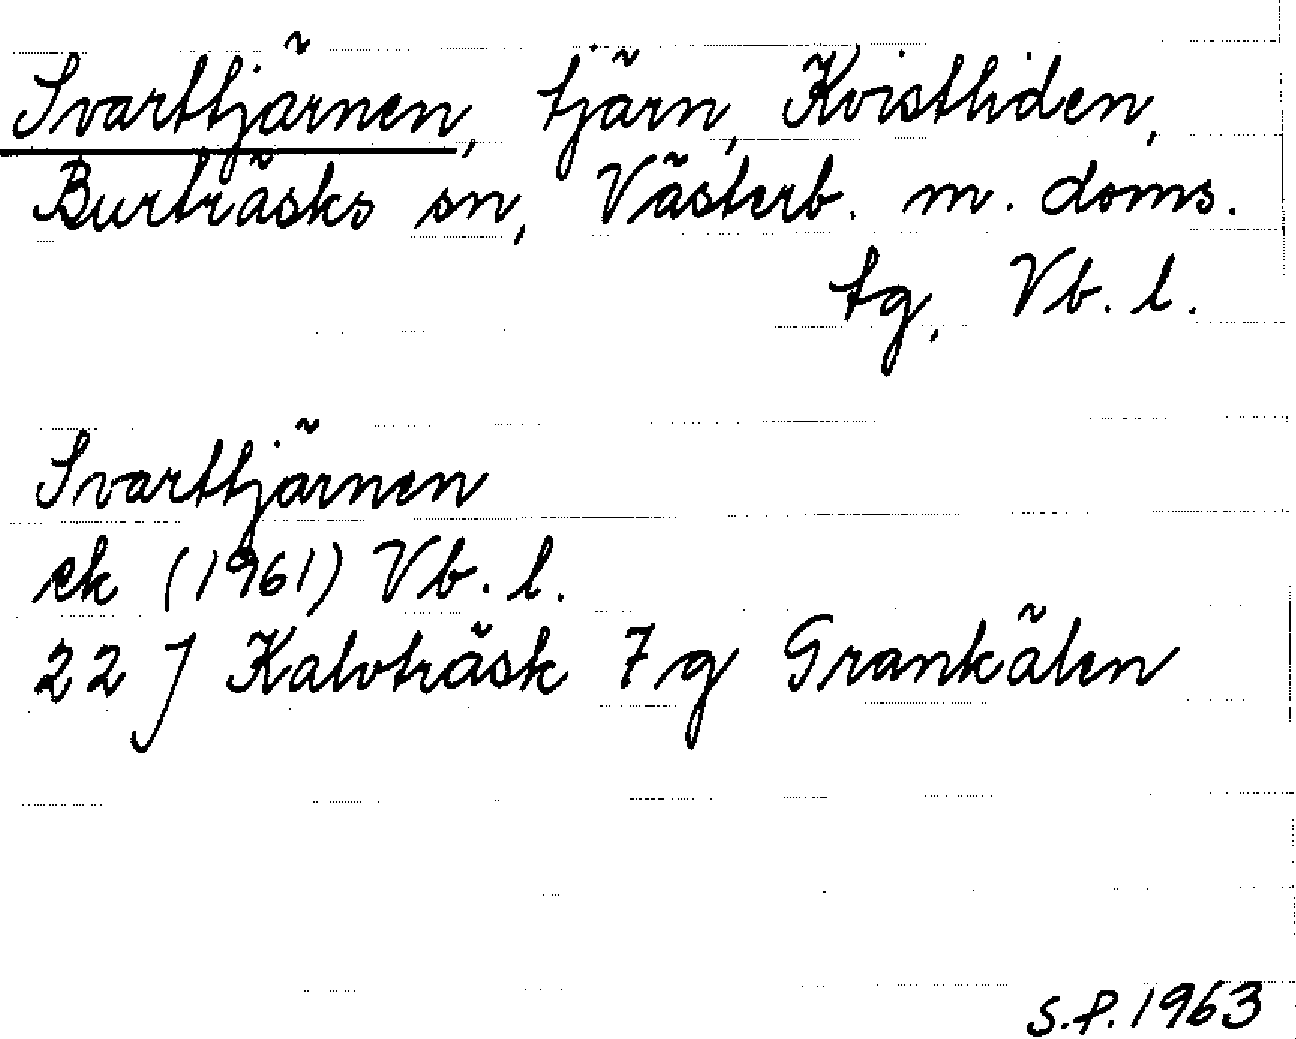 Svarttjärnen, tjärn, Kvistliden,
Burträsks sn, Västerb. m. doms.
tg, Vb. l.
Svarttjärnen
ek (1961) Vb. l.
22 J Kalvträsk 7 g Grankälen
S.P. 1963